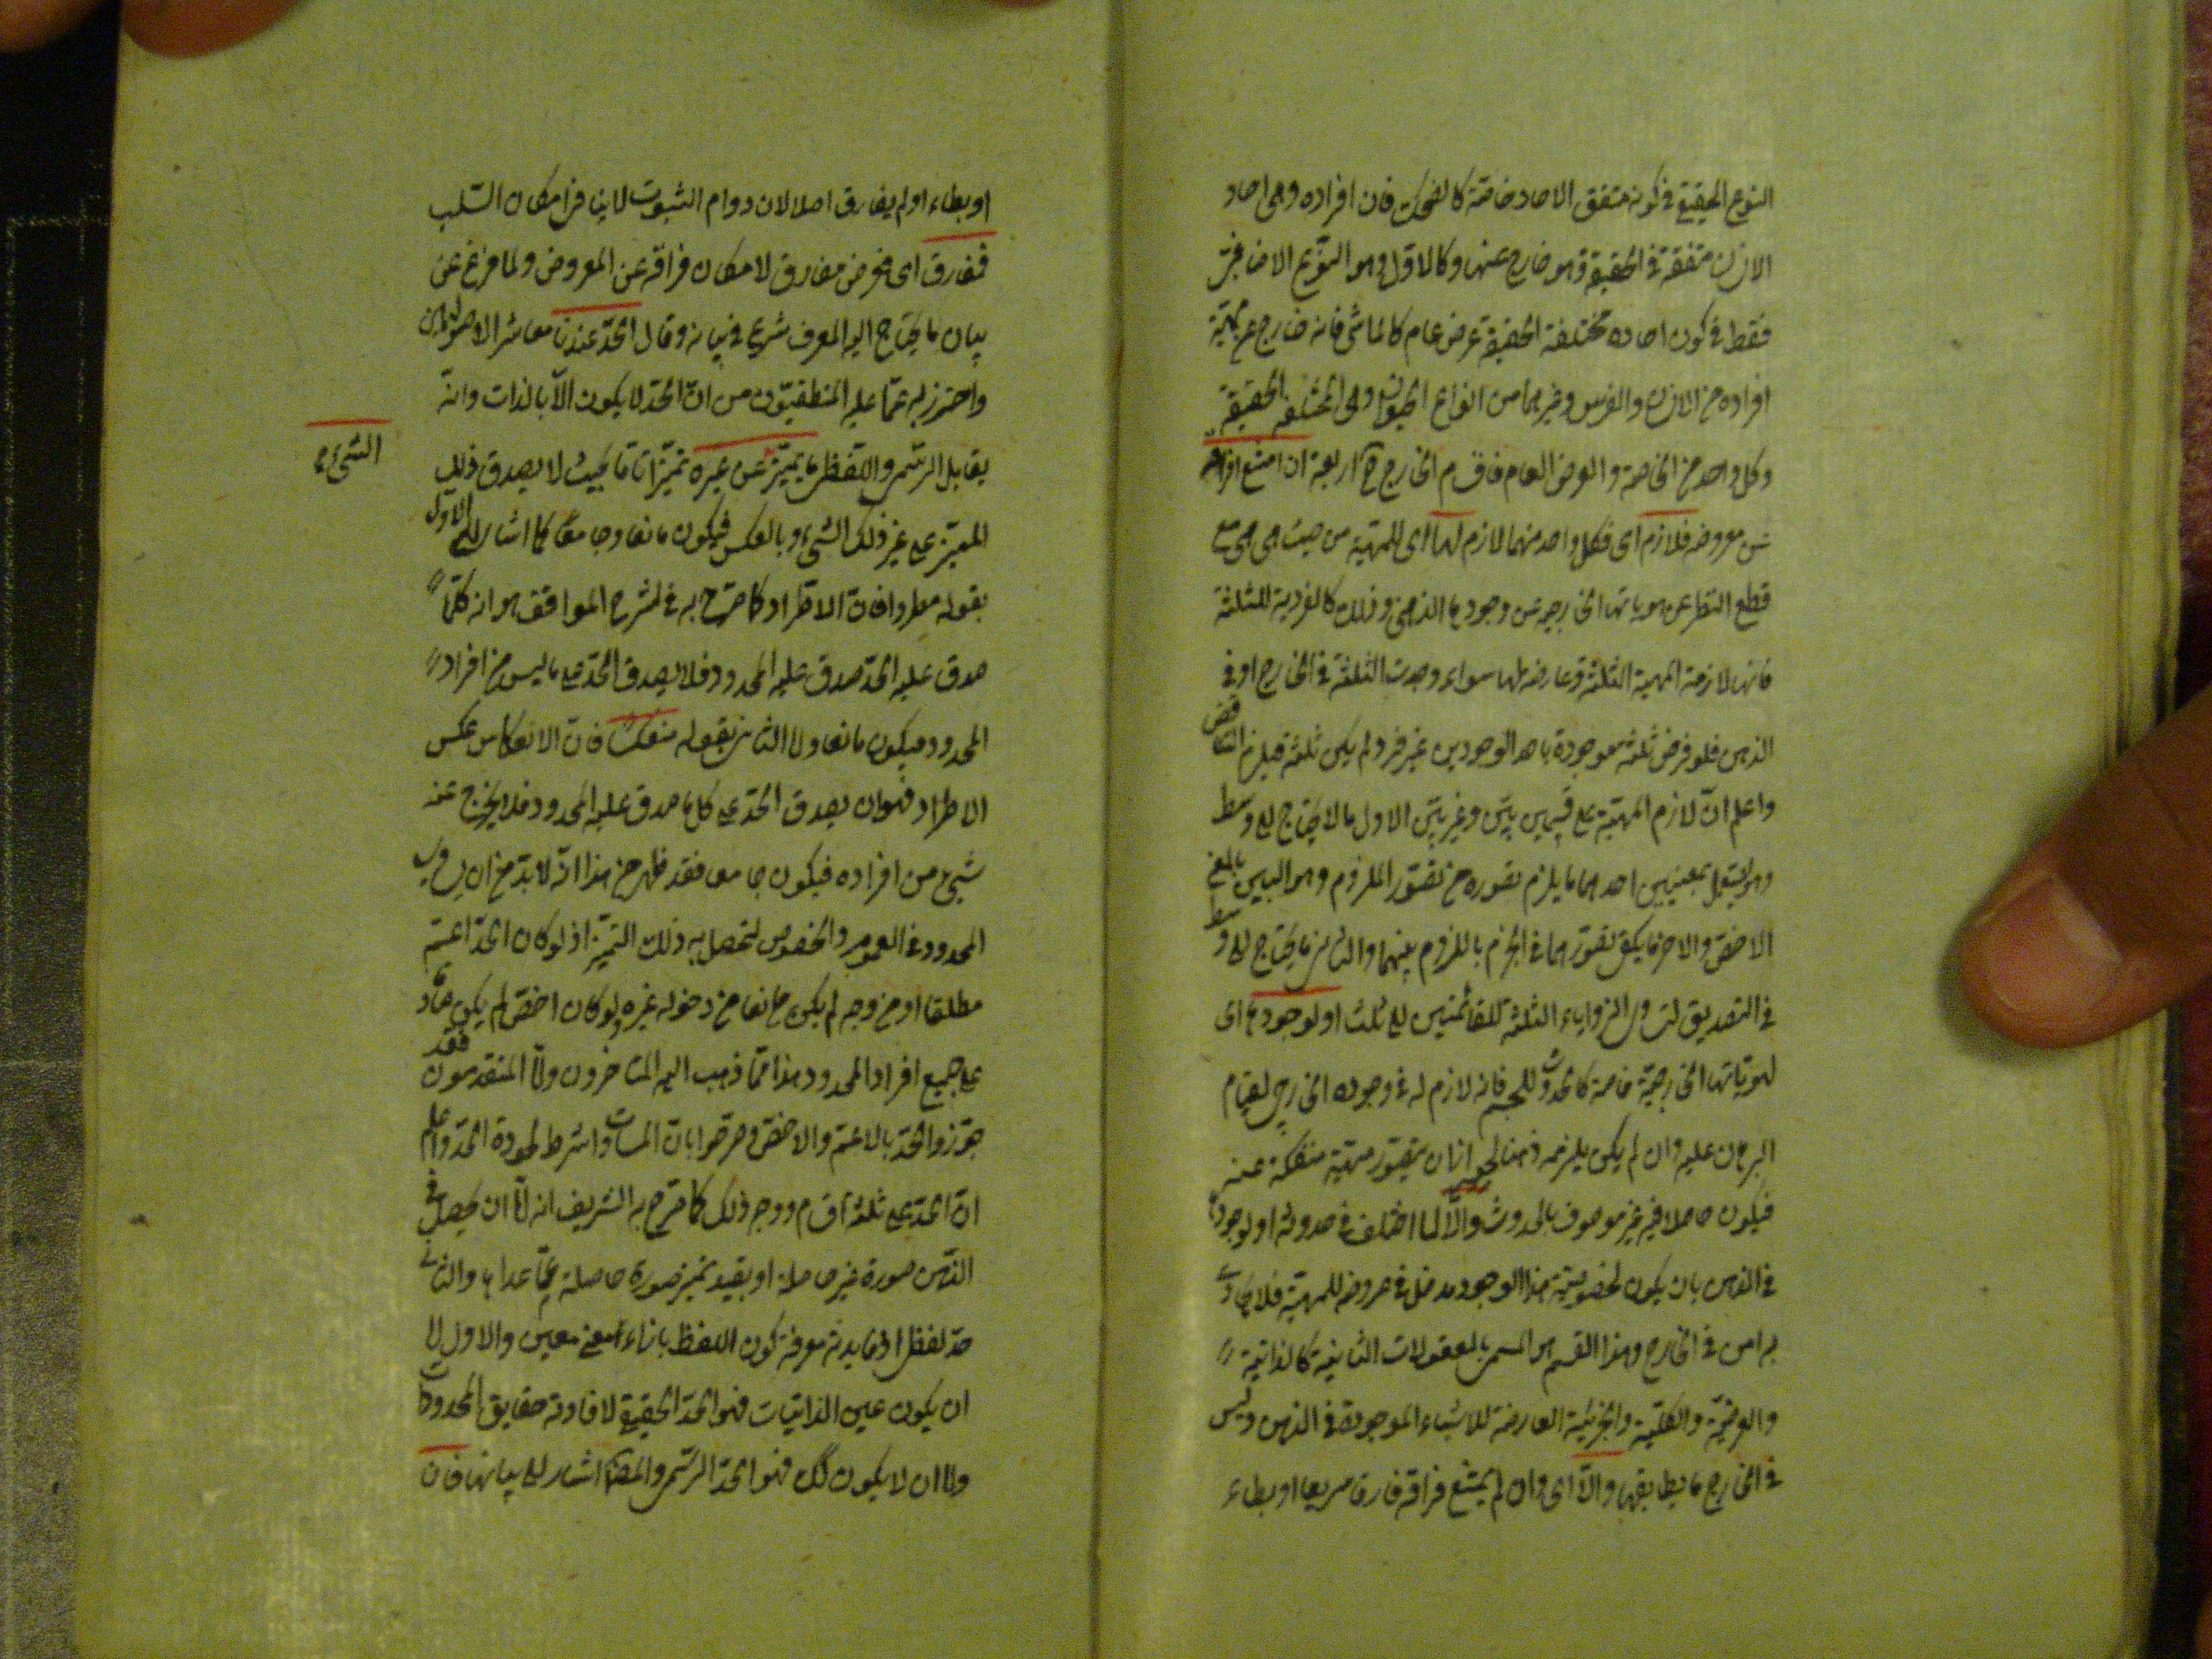 النوع الحقيقي في كونه متفق الاحاد خاصة كالضحك فان افراده وهي احاد
الانسان متفقة في الحقيقة وهو خارج عنها وكالاول وهو النوع الاضافي
فقط في كون احاده مختلفة الحقيقة عرض عام كالماشي فانه خارج عن مهية
افراده من الانسان والفرس وغيرهما من انواع الحيوان وهي المختلفة الحقيقة
وكل واحد من الخاصة والعرض العام فاقسام الخارج ح اربعة ان امتنع افراقه
عن معروضه فلازم اى فكل واحد منهما لازم لها اى للمهية من حيث هى هى مع
قطع النظر عن هوياتها الخارجيه عن وجودها الذهنى وذلك كالفردية للثلثة
فانها لازمة لمهية الثلثة وعارضة لها سواء وجدت الثلثة في الخارج او في
الذهن فلو فرض ثلثة موجودة باحد الوجودين غير فرد لم يكن ثلثة فيلزم التناقض
واعلم ان لازم المهية على قسمين بين وغير بين الاول ما لا يحتاج الى وسط
وهو يستعمل بمعنيين احدهما ما يلزم تصوره من تصور الملزوم وهو البين بالمعنى
الاخص والاخر ما يكفى تصورهما في الجزم باللزوم بينهما والثانى ما يحتاج الى وسط
في التصديق كتساوى الزوايا الثلثة للقائمتين للمثلث او لوجودها اى
لهوياتها الخارجية خاصة كالحدوث للجسم فانه لازم له في وجوده الخارجى لقيام
البرهان عليه وان لم يكن يلزمه ذهنا لجواز ان يتصور مهية منفكة عنه
فيكون حاصلا فيه غير موصوف بالحدوث والا لما اختلف في حدوثه او لوجودها
في الذهن بان يكون لخصوصية هذا الوجود مدخل في عروضه للمهية فلا يحاذى
به امر في الخارج وهذا القسم هو المسمى بالمعقولات الثانية كالذاتية
والعرضية والكلية والجزئية العارضة للاشياء الموجودة في الذهن وليس
في الخارج ما يطابقها والا اى وان لم يمتنع فراقه فارق سريعا او بطاء
او بطاء او لم يفارق اصلا لان دوام الثبوت لا ينافى امكان السلب
فمفارق اى عرض مفارق لامكان فراقه عن المعروض ولما فرغ عن
بيان ما يحتاج اليه المعرف شرع في بيانه وقال الحد عندنا معاشر الاصوليين
واحترز به عما عليه المنطقيون من ان الحد لا يكون الا بالذات وانه
يقابل الرسمى واللفظى ما يميز عن غيره تميزا تاما بحيث لا يصدق ذلك
الشىء
المميز على غير ذلك الشىء وبالعكس فيكون مانعا وجامعا كما اشار الى الاول
بقوله مطردا فان الاطراد كما صرح به في شرح المواقف هو انه كلما
صدق عليه الحد صدق عليه المحدود فلا يصدق الحد على ما ليس من افراد
المحدود فيكون مانعا والى الثانى بقوله منعكسا فان الانعكاس عكس
الاطراد فهو ان يصدق الحد على كل ما صدق عليه المحدود فلا يخرج عنه
شىء من افراده فيكون جامعا فقد ظهر من هذا انه لا بد من ان يساوى
المحدود في العموم والخصوص ليحصل به ذلك التميز اذ لو كان الحد اعم
مطلقا او من وجه لم يكن مانعا من دخوله غيره ولو كان اخص لم يكن صادقا
على جميع افراد المحدود هذا مما ذهب اليه المتاخرون واما المتقدمون فقد
جوزوا الحد بالاعم والاخص وصرحوا بان المساواة شرط لجودة الحد واعلم
ان الحد على ثلثة اقسام ووجه ذلك كما صرح به الشريف انه اما ان يحصل في
الذهن صورة غير حاصلة او يفيد تميز صورة حاصلة عما عداها والثانى
حد لفظى اذ فايدته معرفة كون اللفظ بازاء معنى معين والاول اما
ان يكون عين الذاتيات فهو الحد الحقيقى لافادته حقايق المحدودات
واما ان لا يكون كك فهو الحد الرسمى والمص اشار الى بيانها فان